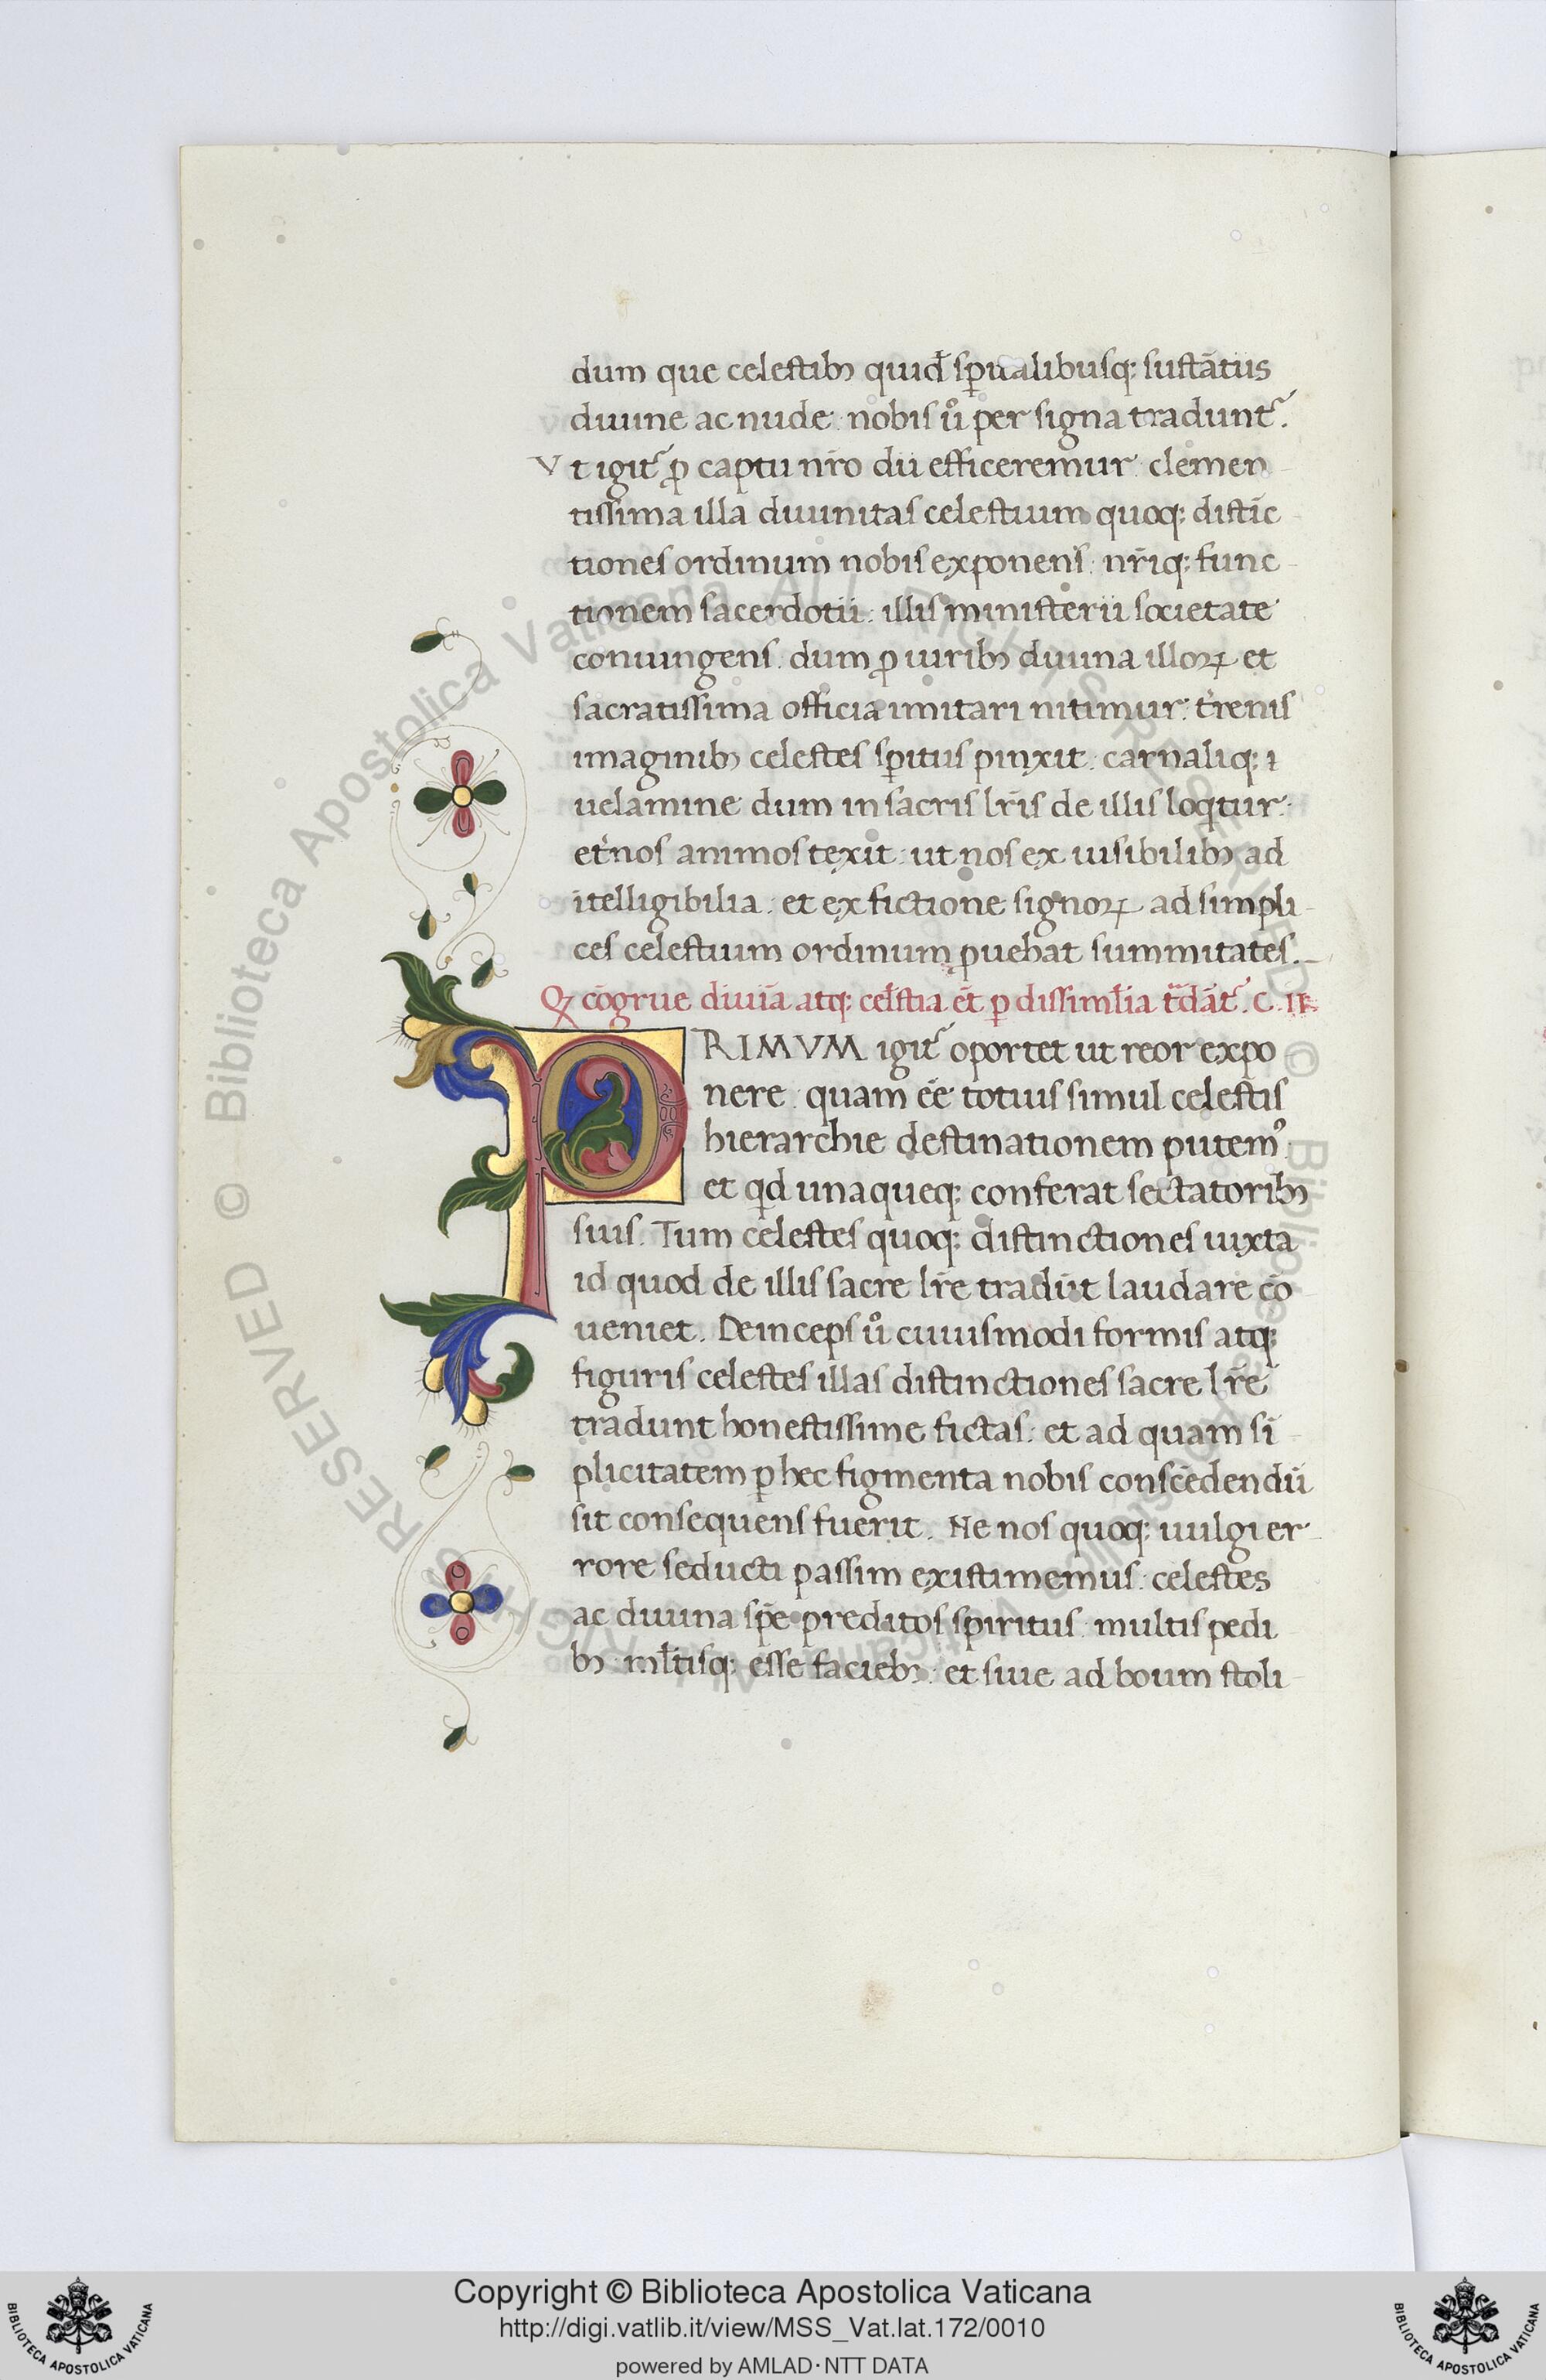 dum que celestibꝫ quid̄ sp̄ualibusq; sustātiis
diuine ac nude: nobis ůper signa tradunt᷑.
Vt igit᷑ ꝓ captu nr̄o dii efficeremur: clemen
tissima illa diuinitas celestium quoq; distīc
tiones ordinum nobis exponens: nr̄iq; func
tionem sacerdotii: illis ministerii societate
coniungens. dum ꝓ uiribꝫ diuina illoꝝ et
sacratissima officia imitari nitimur: t̓renis
imaginibꝫ celestes sp̄itus pinxit. carnaliq; ı
uelamine dum in sacris lr̄is de illis loqtur:
et̓nos animos texit: ut nos ex uisibilibꝫ ad
ītelligibilia: et ex fictione signoꝝ ad simpli
ces celestium ordinum ꝓuehat summitates.
Q cōgrue diuīa atq; cel̄stia ēt ꝑ dissimil̄ia t̄dāt᷑. C. II.
PRIMVM igit᷑ oportet ut reor expo
nere: quam eē totius simul celestis
hierarchie destinationem putemꝰ:
et qd unaqueq; conferat sectatoribꝫ
suis. Tum celestes quoq; distinctiones iuxta
id quod de illis sacre lr̄e tradūt laudare cō
ueniet. Deinceps ů cuiusmodi formis atq;
figuris celestes illas distinctiones sacre lr̄e
tradunt honestissime fictas: et ad quam sī
plicitatem ꝑ hec figmenta nobis conscēdendū
sit consequens fuerit. Ne nos quoq; uulgi er
rore seducti passim existimemus: celestes
ac diuina spē preditos spiritus: multis pedi
bꝫ: ml̄tisq; esse faciebꝫ: et siue ad boum stoli
Copyright © Biblioteca Apostolica Vaticana
http://digi.vatlib.it/view/MSS_Vat.lat.172/0010
powered by AMLAD·NTT DATA
BIBLIOTECA APOSTOLICA VATICANA
BIBLIOTECA APOSTOLICA VATICANA